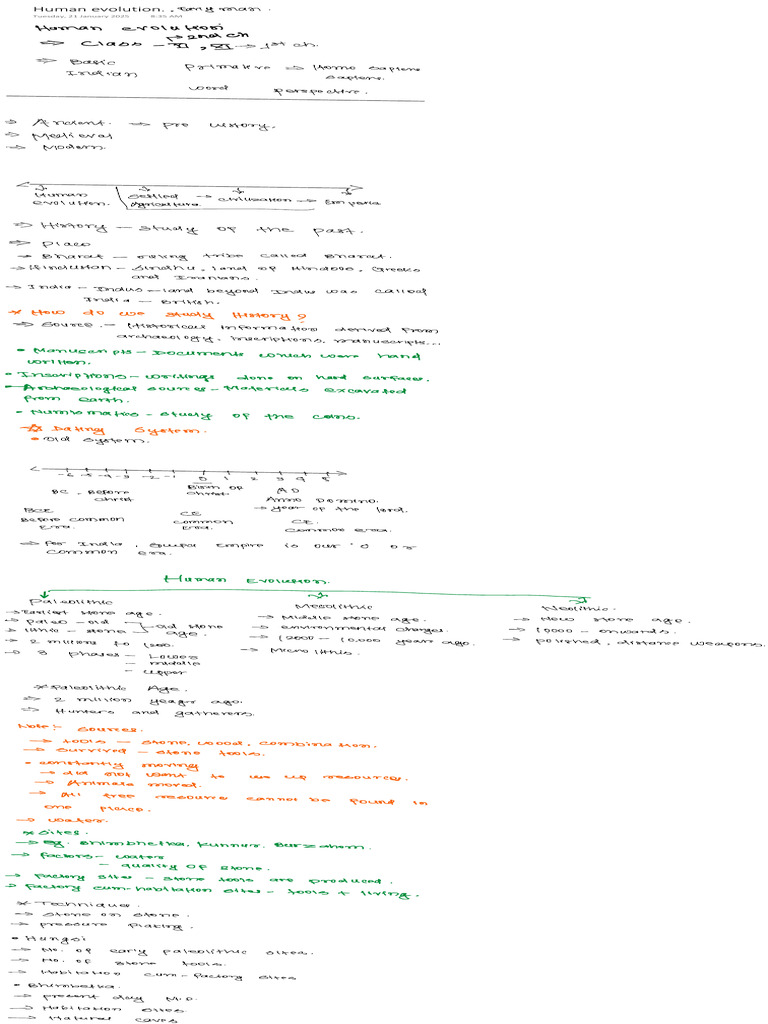 Human evolution. , Early man.
Tuesday, 21 January 2025 8:35 AM
Human evolution
→ 2nd ch
⇒ Class - VI , XI → 1st ch.
⇒ Basic Primative ⇒ Homo sapiens
Indian sapiens.
word perspective.
→ Ancient. → pre history.
→ Medieval
→ Modern.
Human Settled → civilization → Emperia
evolution. Agriculture.
⇒ History - study of the past.
⇒ Place
→ Bharat - tribe called Bharat.
→ Hindustan - Sindhu, land of Hindoos, Greeks
and Iranians.
→ India - Indus - land beyond Indus was called
India - British.
* How do we study History?
⇒ Source. - Historical Information derived from
archaeology, Inscriptions, manuscripts...
• Manuscripts - Documents which were hand
written.
• Inscriptions - writings done on hard surfaces.
• Archaeological sources - Materials excavated
from earth.
• Numismatics - study of the coins.
Dating System.
• Old System.
-6 -5 -4 -3 -2 -1 0 1 2 3 4 5
BC. Before Birth of AD
Christ Christ Anno Domino.
→ year of the lord.
BCE CE CE.
Before common common common era.
Era. Era.
→ For India , Gupta Empire is our '0' or
common era.
Human Evolution.
Paleolithic Mesolithic Neolithic.
→ Earliest stone age. → Middle stone age. → New stone age.
→ paleo - old → environmental changes. → 10000 - onwards.
→ lithic - stone old stone age. → 12000 - 10,000 year ago. → polished, distance weapons.
→ 2 million to
→ 3 phases - Lower → Microliths.
- middle
- upper
* Paleolithic Age.
⇒ 2 million years ago.
⇒ Hunters and gatherers.
Note:- Sources.
→ tools - stone, wood, combination.
→ survived - stone tools.
• constantly moving
→ did not want to use up resource.
→ Animals moved.
→ All resource cannot be found in
one place.
→ water.
* Sites.
→ eg. Bhimbhetka, Kunnur. Burzahom.
→ factors - water
- quality of stone.
→ factory sites - stone tools are produced.
→ factory cum-habitation sites - tools + living.
* Techniques
→ stone on stone.
→ pressure flaking.
• Hungsi
→ No. of early paleolithic sites.
→ No. of stone tools.
→ Habitation cum-factory sites
• Bhimbetka.
→ present day M.P.
→ Habitation sites.
→ Natural caves